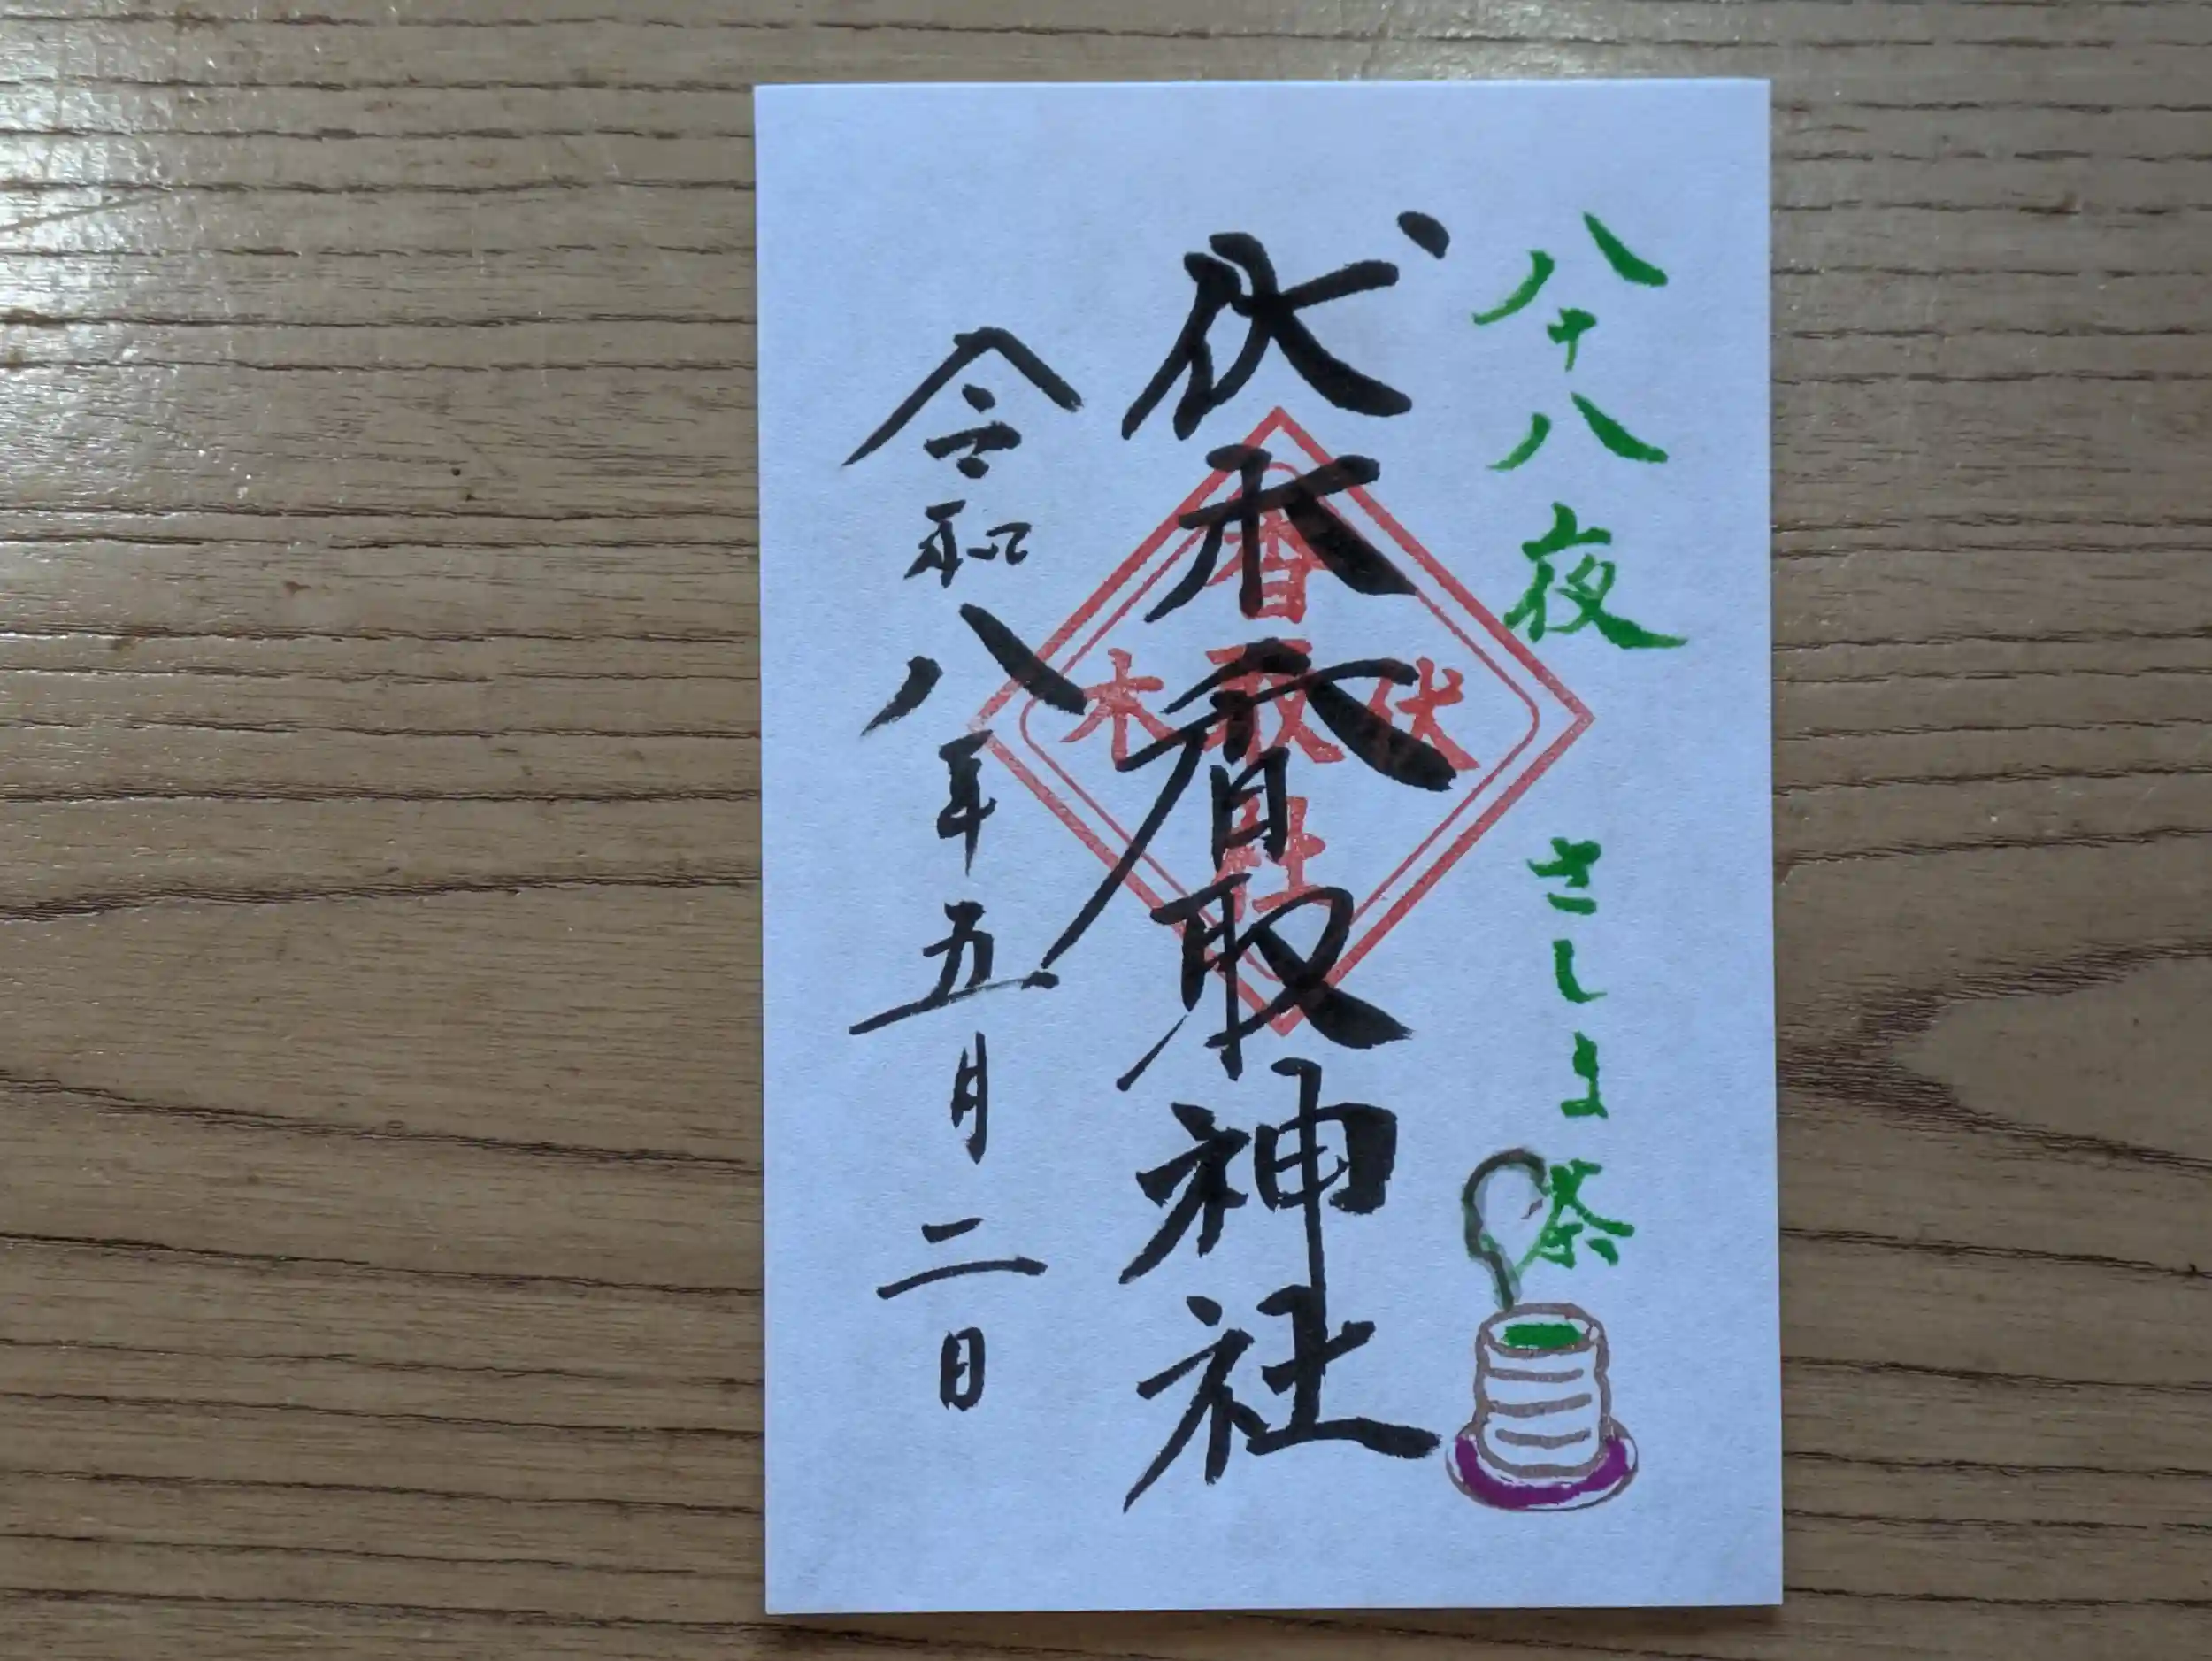 八十八夜 さしま茶
伏木香取神社
香取社
伏木
令和八年五月二日